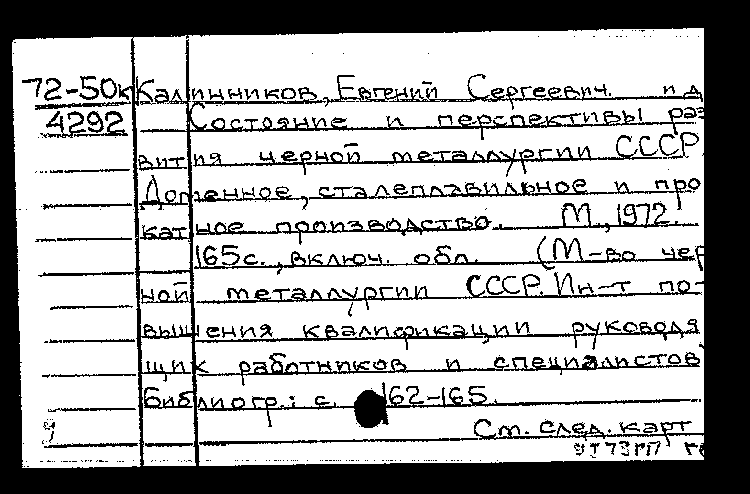 72-50к Калинников, Евгений Сергеевич. и д
4292 Состояние и перспективы раз
вития черной металлургии СССР.
Доменное, сталеплавильное и про
катное производство. М., 1972.
165с., включ. обл. (М-во чер
ной металлургии СССР. Ин-т по-
вышения квалификации руководя
щих работников и специалистов)
Библиогр.: с. 162-165.
См. след. карт